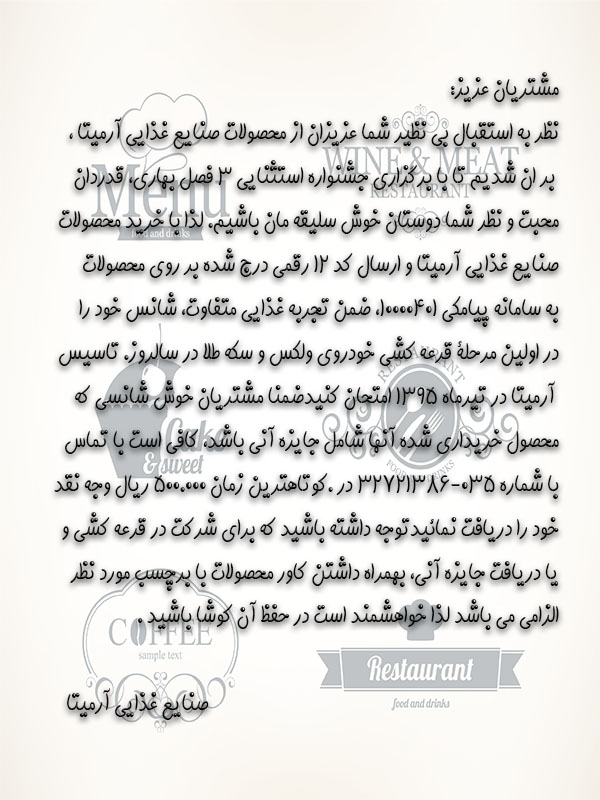 مشتریان عزیز:
نظر به استقبال بی نظیر شما عزیزان از محصولات صنایع غذایی آرمیتا ،
بر ان شدیم تا با برگزاری جشنواره استثنایی ۳ فصل بهاری، قدردان
محبت و نظر شما دوستان خوش سلیقه مان باشیم. لذا با خرید محصولات
صنایع غذایی آرمیتا و ارسال کد ۱۲ رقمی درج شده بر روی محصولات
به سامانه پیامکی ۱۰۰۰۰۴۰۱، ضمن تجربه غذایی متفاوت، شانس خود را
در اولین مرحلۀ قرعه کشی خودروی ولکس و سکه طلا در سالروز. تاسیس
آرمیتا در تیرماه ۱۳۹۵ امتحان کنیدضمنا مشتریان خوش شانسی که
محصول خریداری شده آنها شامل جایزه آنی باشد، کافی است با تماس
با شماره ۰۳۵-۳۲۷۲۱۳۸۶ در .کوتاهترین زمان ۵۰۰.۰۰۰ ریال وجه نقد
خود را دریافت نمائیدتوجه داشته باشید که برای شرکت در قرعه کشی و
یا دریافت جایزه آنی، بهمراه داشتن کاور محصولات با برچسب مورد نظر
الزامی می باشد لذا خواهشمند است در حفظ آن کوشا باشید .
صنایع غذایی آرمیتا
Menu
food and drinks
WINE & MEAT
RESTAURANT
RESTAURANT
FOOD AND DRINKS
Cake
& sweet
COFFEE
sample text
Restaurant
food and drinks